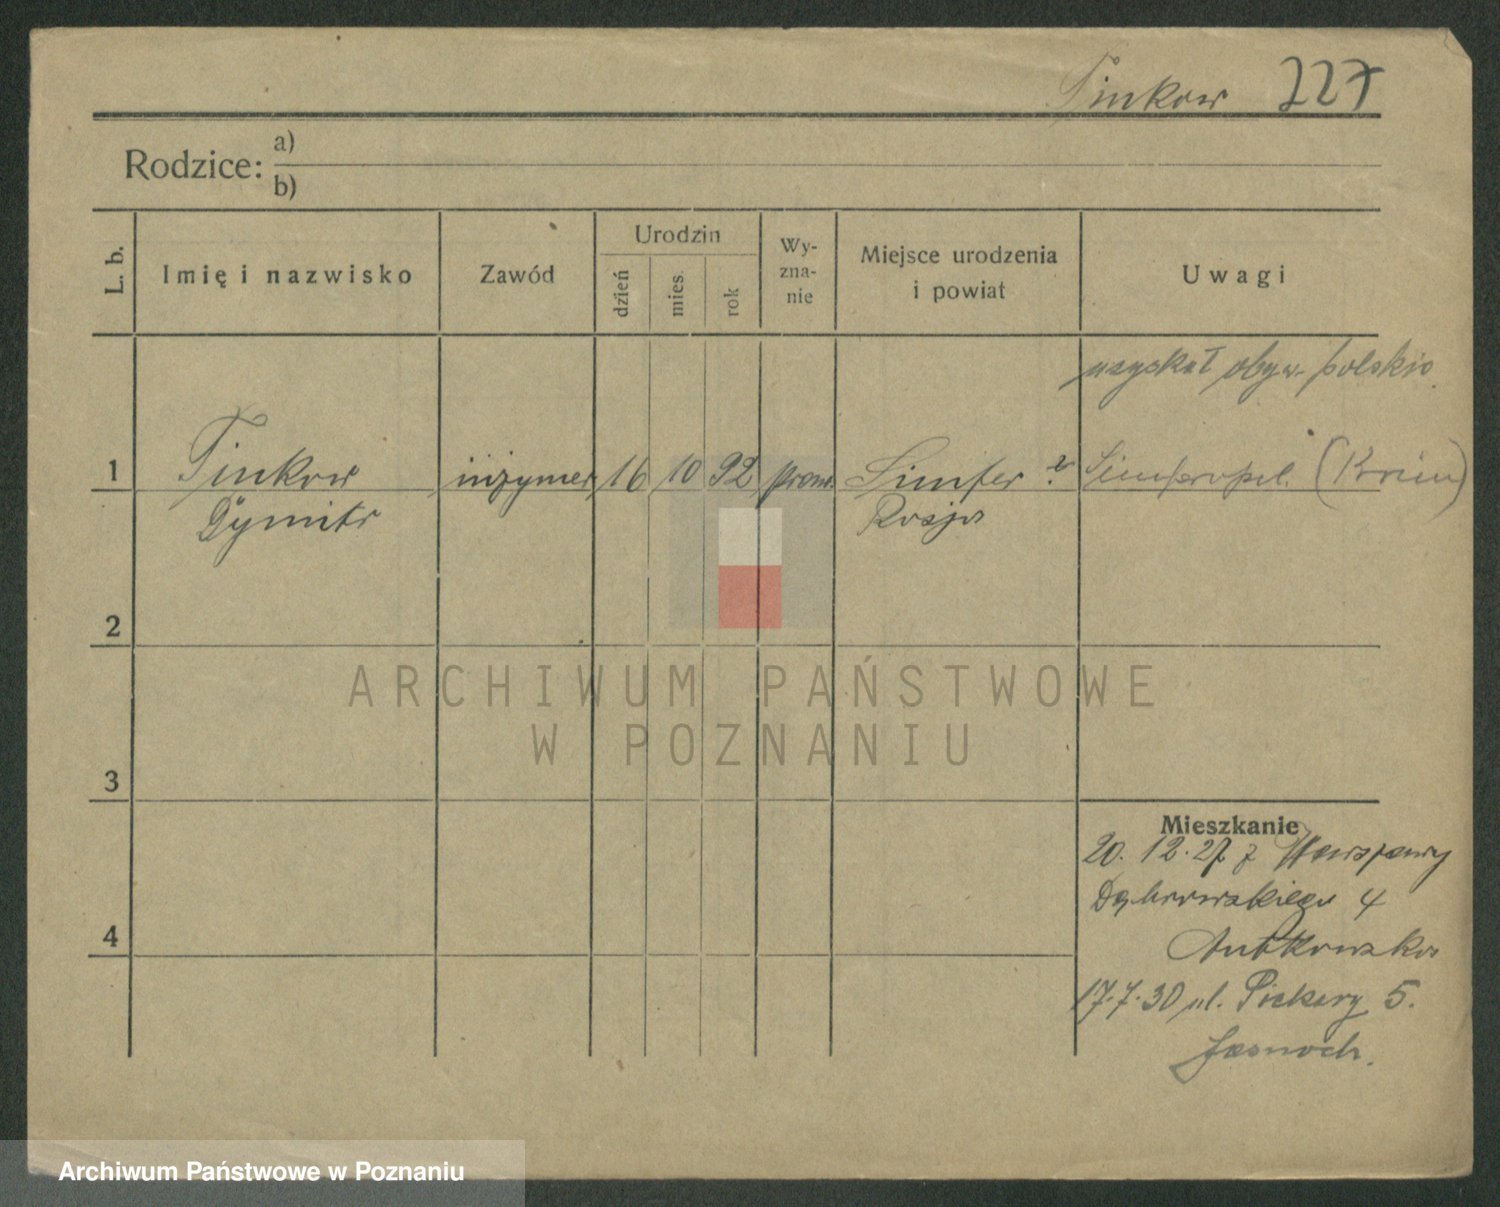 Tinkow 227
Rodzice: a)
b)
L. b.
Imię i nazwisko
Zawód
Urodzin
dzień
mies.
rok
Wy-
zna-
nie
Miejsce urodzenia
i powiat
Uwagi
uzyskał obyw. polskie
1 Tinkow inżynier 16 10 92 praw. Simfer ? Simferopol. (Krim)
Dymitr Rosja
2
3
4
ARCHIWUM PAŃSTWOWE
W POZNANIU
Mieszkanie
20. 12. 27. z Warszawy
Dąbrowskiego 4
Antkowska
17.7.30 ul. Piekary 5.
Jasnoch.
Archiwum Państwowe w Poznaniu